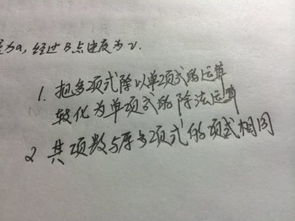 为a,经过B点速度为v.
1. 把多项式除以单项式的运算
转化为单项式的除法运算
2 其项数与原多项式的项式相同